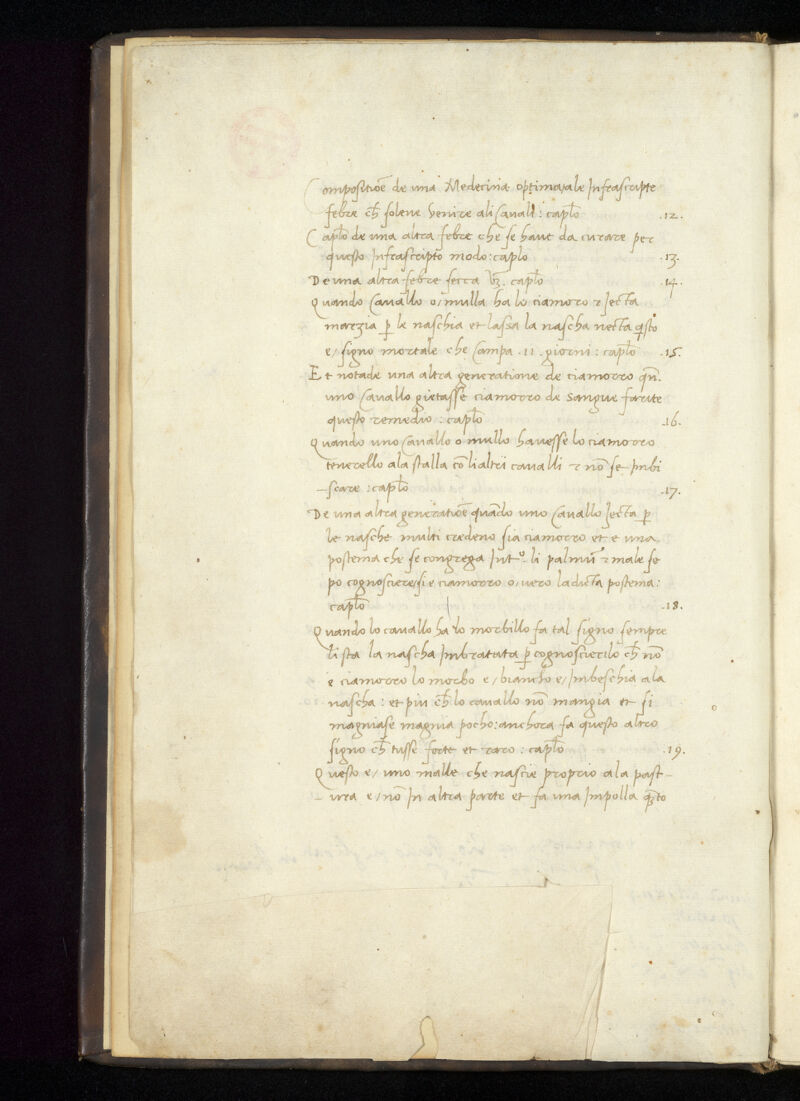 Compositioē de una Medecina optima ale Infrascripte
febre ch̄ soleno venire ali Cavali : caplō .12.
Caplō de una altra febre che se have da curare per
questo Infrascripto modo : caplō .13.
De una altra febre secca caplō .14.
Quando Cavallo o/ mulla ha lo ciamoro et Jecta
marzia p̄ le naschia et lassa la nascha necta
e/ signo mortale che Campa .11. giorni : caplō .15.
Et notade una altra generatione de ciamorro qn̄.
uno Cavallo gietasse ciamorro de sangue farite
questo remedio : caplō .16.
Quando uno Cavallo o mullo havesse lo ciamorro
tenerello ala stalla cō li altri cavalli et nō se
-scare : caplō .17.
De una altra generatioē quādo uno Cavallo Jecta p̄
le nasche multi credeno sia ciamorro et e una
postema che se congrega Int.º li palmuī et male se
po cognosciere/si e ciamorro o/ vero la dicta postema :
caplō .18.
Quando lo cavallo ha lo morbillo fa tal signo sempre
li sta la nascha Imbratata p̄ cognoscierlo ch̄ nō
e ciamorro lo morbo e/ biancho e/ Imbeschia ala
nascha : et piu ch̄ lo cavallo nō mangia et si
magniase magnia pocho : anchora fa questo altro
signo ch̄ tusse forte et raro : caplō .19.
Questo e/ uno malle che nascie proprio ala past-
-ura e/ nō In altra parte et fa una Impolla